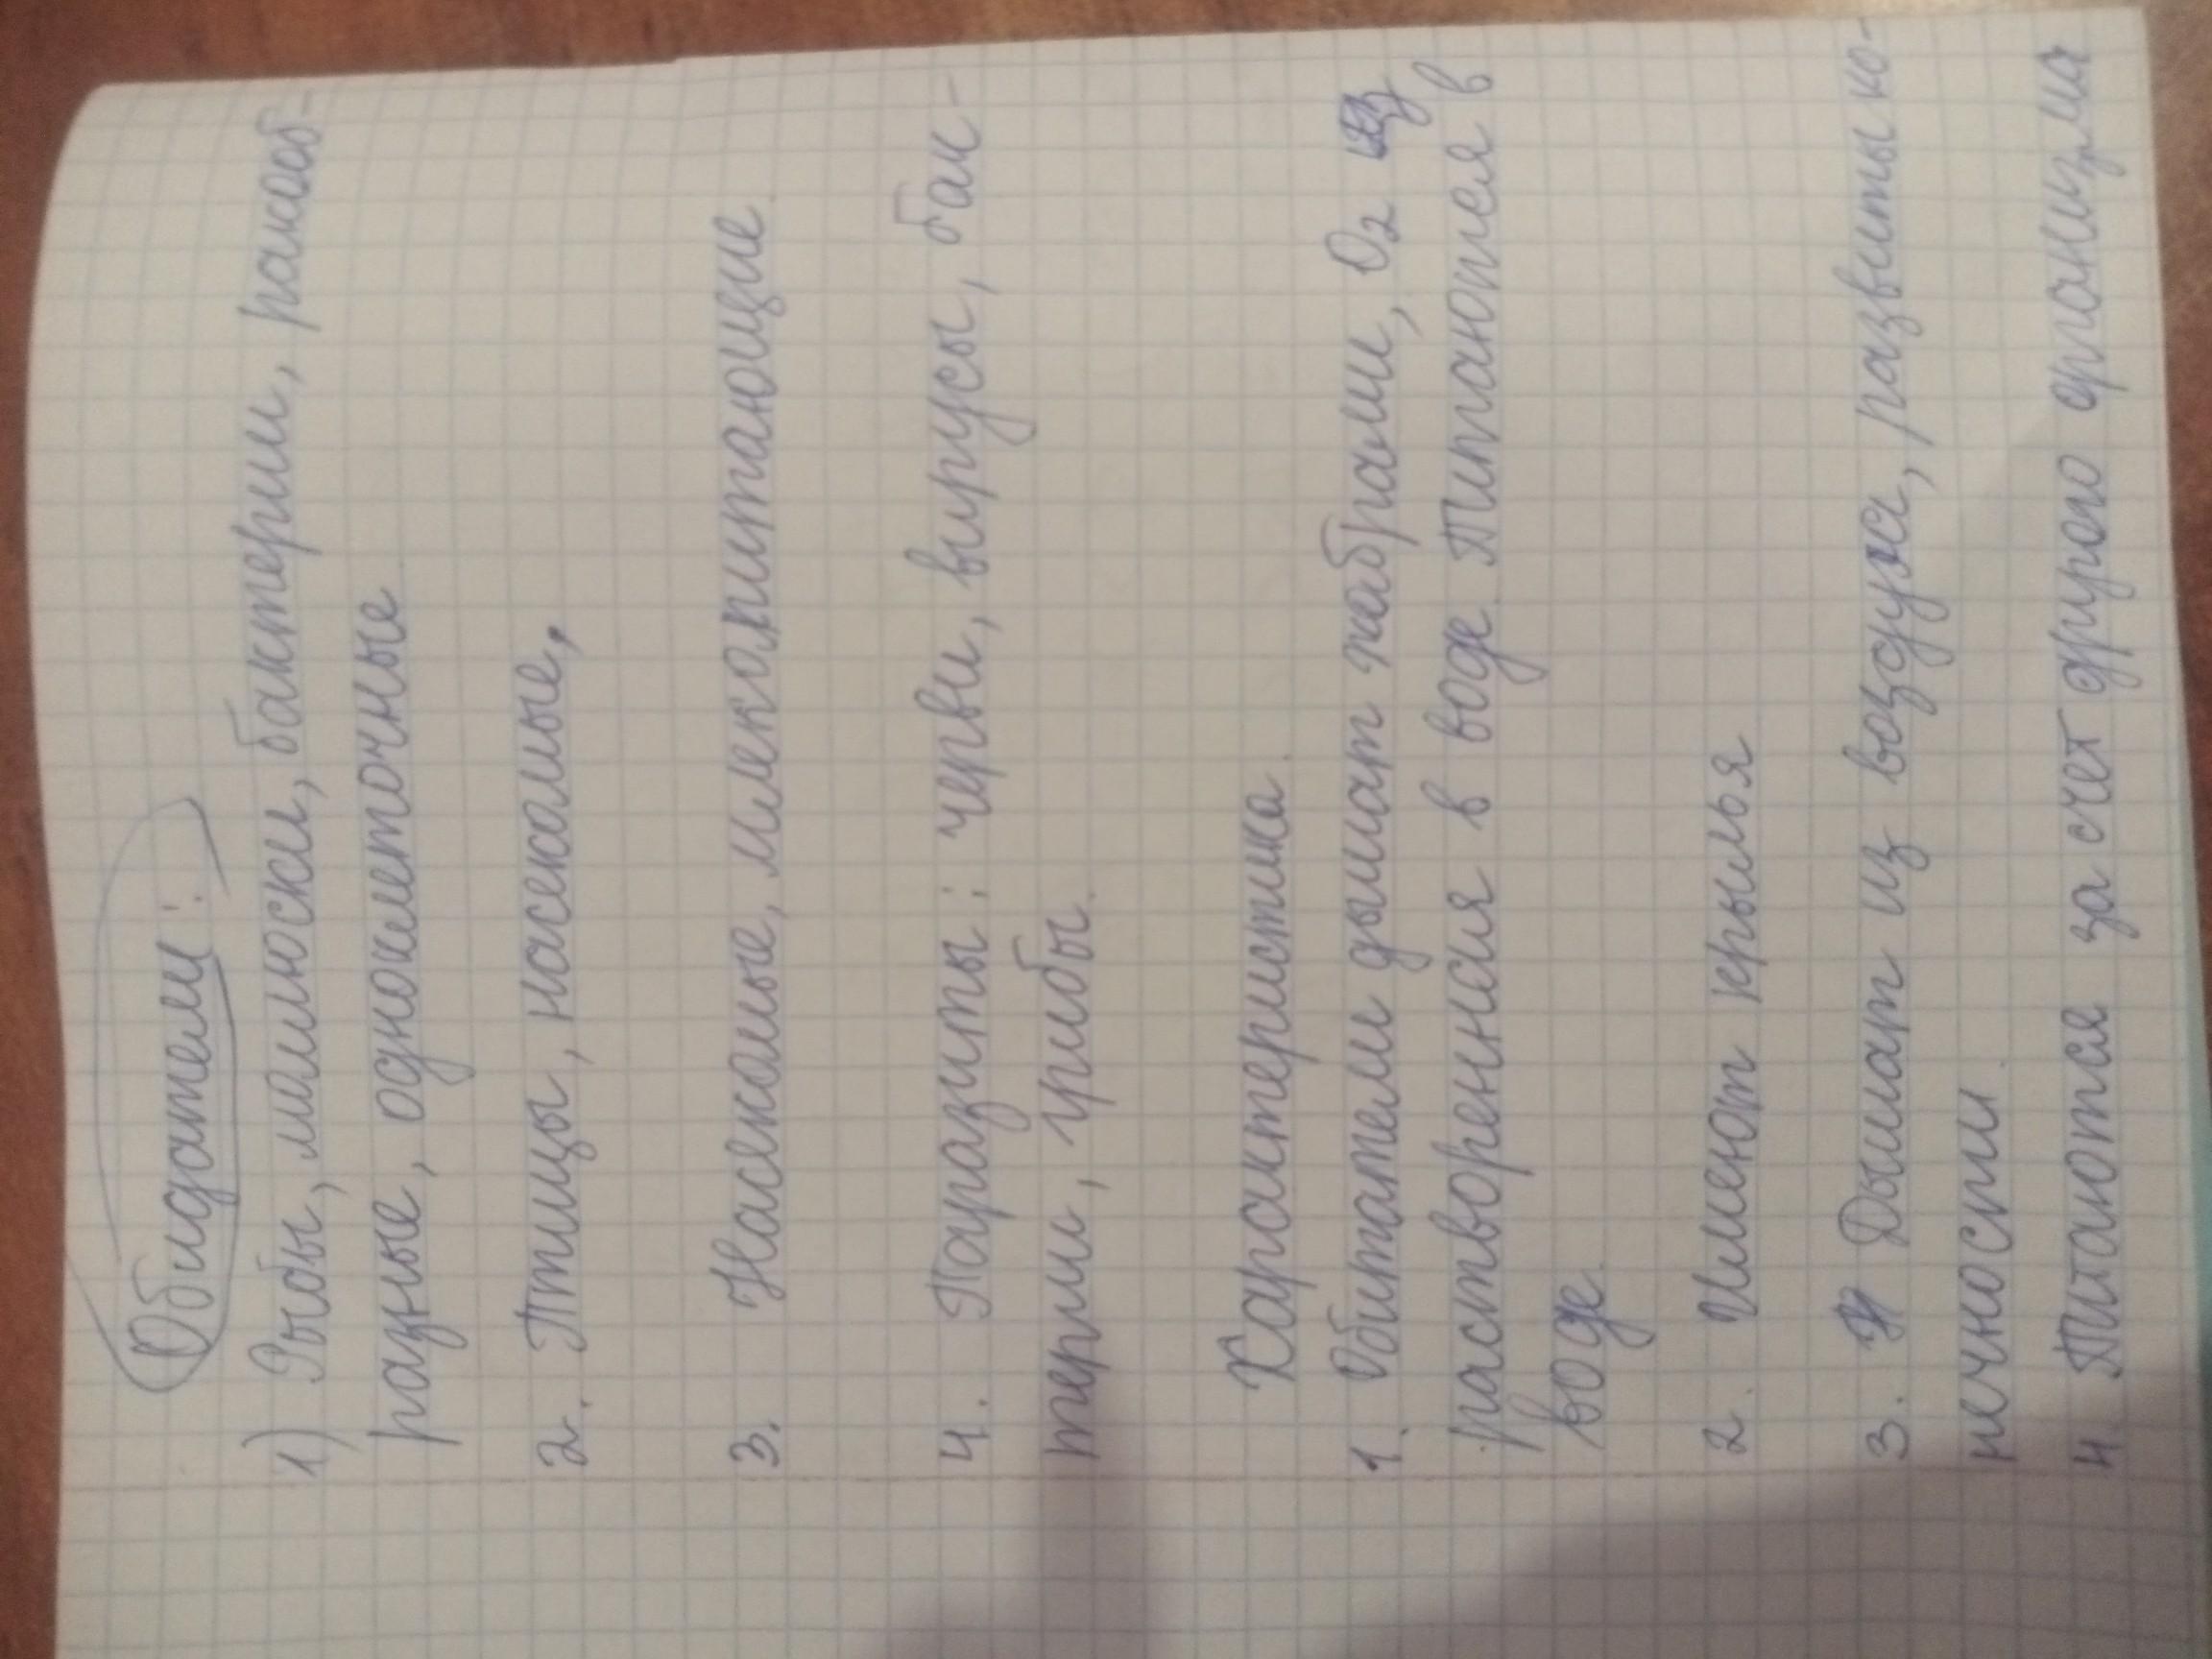 Обидатели:
1) Рыбы, маллюски, бактерии, ракооб-
разные, одноклеточные
2. Птицы, насекомые,
3. Насекомые, млекопитающие
4. Паразиты: черви, вырусы, бак-
терии, грибы.
Характеристика
1. Обитатели дышат жабрами, O2 из
растворенная в воде. Питаются в
воде.
2. Имеют крылья
3. Дышат из воздуха, развиты ко-
нечности.
4. Питаются за счет другого организма